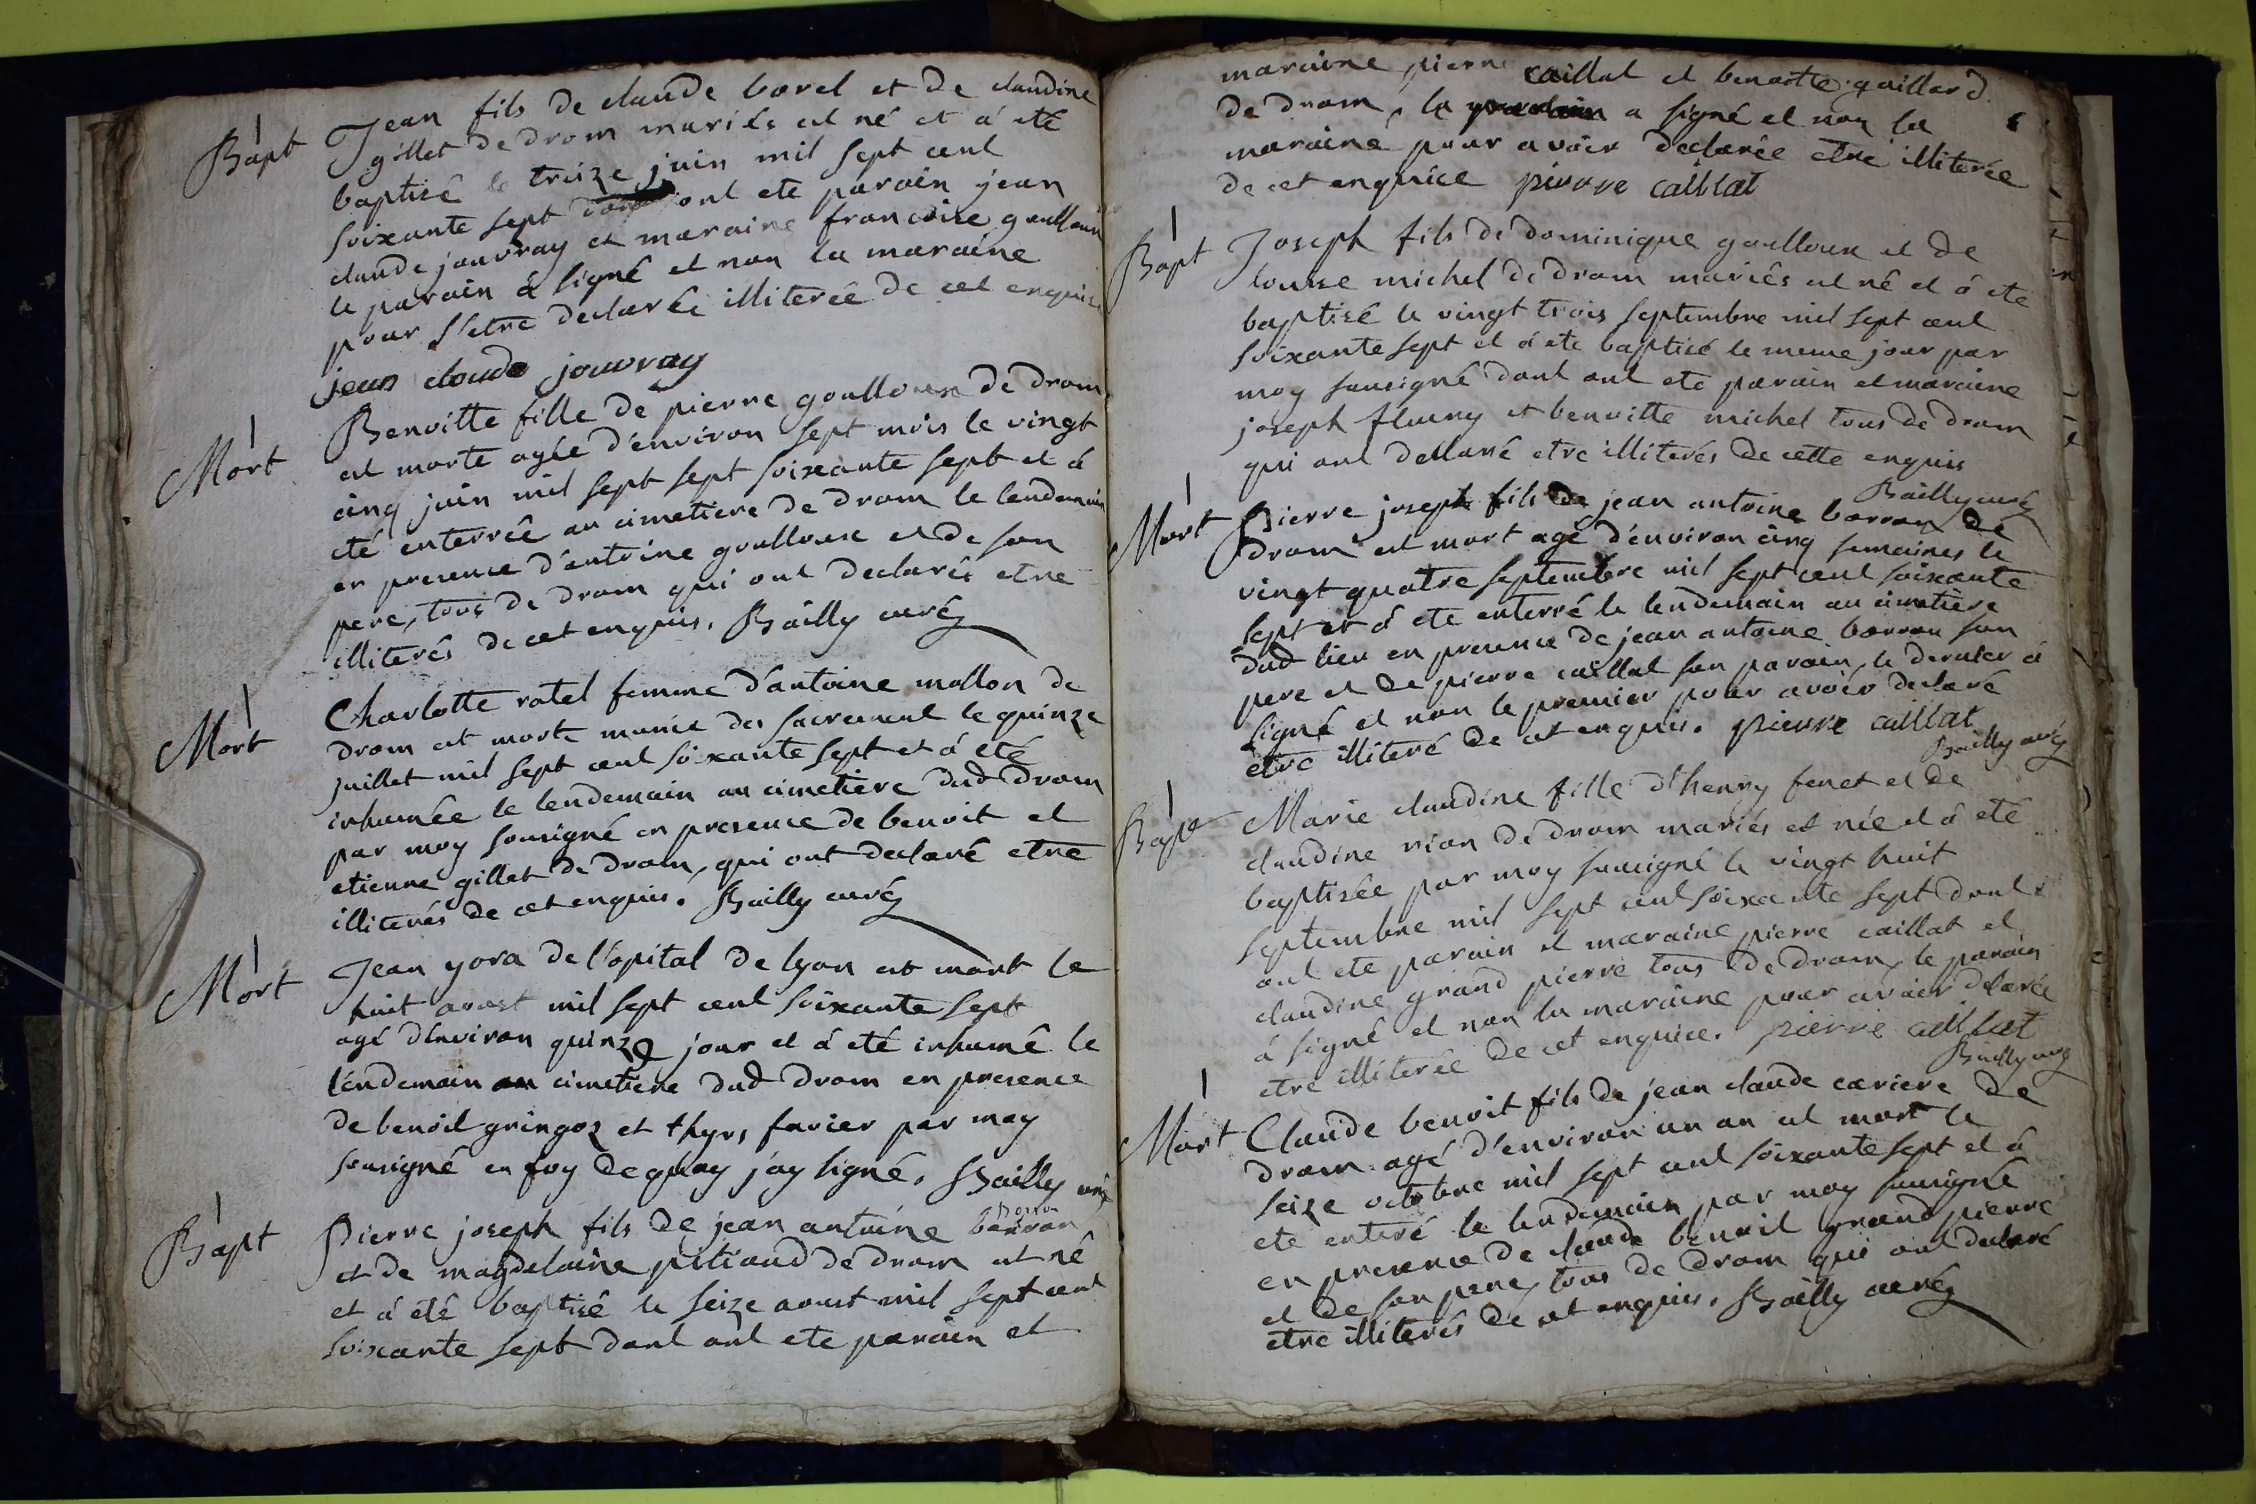 Bapt
Jean fils de claude borel et de claudine
gillet de drom mariés est né et á eté
baptisé le treize juin mil sept cent
soixante sept dont ont ete parain jean
claude jouvray et maraine francoise goulloux
le parain á signé et non la maraine
pour s'etre declarée illiterée de cet enquise
jean cloude jouvray
Mort
Benoitte fille de pierre goulloux de drom
est morte agée d'environ sept mois le vingt
cinq juin mil sept sept soixante sept et á
eté enterrée au cimetiere de drom le lendemain
en presence d'antoine goulloux et de son
pere, tous de drom qui ont declarés etre
illiterés de cet enquis. Bailly curé
Mort
Charlotte ratel femme d'antoine mollon de
drom est morte munie des sacrement le quinze
juillet mil sept cent soixante sept et á eté
inhumée le lendemain au cimetiere dud drom
par moy sousigné en presence de benoit et
etienne gillet de drom, qui ont declaré etre
illiterés de cet enquis. Bailly curé
Mort
Jean yora de l'opital de lyon est mort le
huit aoust mil sept cent soixante sept
agé d'environ quinze jour et á eté inhumé le
lendemain au cimetiere dud drom en presence
de benoit gringoz et thyrs favier par moy
sousigné en foy de quoy j'ay signé. Bailly curé
Bapt
Pierre joseph fils de jean antoine borron
et de magdelaine pitiaud de drom est né
et á été baptisé le seize aoust mil sept cent
soixante sept dont ont ete parain et
maraine pierre caillat et benoite gaillard
de drom, le parain a signé et non la
maraine pour avoir declarée etre illiterée
de cet enquice pierre caillat
Bapt
Joseph fils de dominique goulloux et de
louise michel de drom mariés est né et á ete
baptisé le vingt trois septembre mil sept cent
soixante sept et á ete baptisé le meme jour par
moy sousigné dont ont ete parain et maraine
joseph fluny et benoitte michel tous de drom
qui ont declaré etre illiterés de cette enquis
Bailly curé
Mort
Pierre joseph fils de jean antoine borron de
drom est mort agé d'environ cinq semaines le
vingt quatre septembre mil sept cent soixante
sept et á ete enterré le lendemain au cimetiere
dud lieu en presence de jean antoine borron son
pere et de pierre caillat son parain, le dernier á
signé et non le premier pour avoir declaré
etre illiteré de cet enquis. pierre caillat
Bailly curé
Bapt
Marie claudine fille d'henry fenet et de
claudine vion de drom mariés est née et á eté
baptisée par moy sousigné le vingt huit
septembre mil sept cent soixante sept dont
ont ete parain et maraine pierre caillat et
claudine grand pierre tous de drom, le parain
á signé et non la maraine pour avoir declarée
etre illiterée de cet enquice. pierre caillat
Bailly curé
Mort
Claude benoit fils de jean claude cariere de
drom agé d'environ un an est mort le
seize octobre mil sept cent soixante sept et á
ete enteré le lendemain par moy sousigné
en presence de claude benoit grand pierre
et de son pere, tous de drom qui ont declaré
etre illiterés de cet enquis. Bailly curé